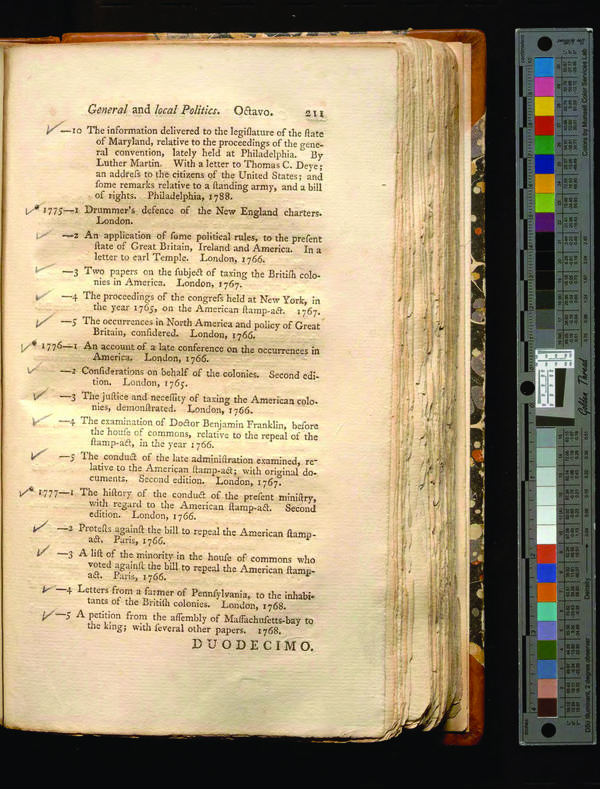 General and local Politics. Octavo. 211
—10 The information delivered to the legiſlature of the ſtate
of Maryland, relative to the proceedings of the gene-
ral convention, lately held at Philadelphia. By
Luther Martin. With a letter to Thomas C. Deye;
an addreſs to the citizens of the United States; and
ſome remarks relative to a ſtanding army, and a bill
of rights. Philadelphia, 1788.
* 1775—1 Drummer's defence of the New England charters.
London.
—2 An application of ſome political rules, to the preſent
ſtate of Great Britain, Ireland and America. In a
letter to earl Temple. London, 1766.
—3 Two papers on the ſubject of taxing the Britiſh colo-
nies in America. London, 1767.
—4 The proceedings of the congreſs held at New York, in
the year 1765, on the American ſtamp-act. 1767.
—5 The occurrences in North America and policy of Great
Britain, conſidered. London, 1766.
* 1776—1 An account of a late conference on the occurrences in
America. London, 1766.
—2 Conſiderations on behalf of the colonies. Second edi-
tion. London, 1765.
—3 The juſtice and neceſſity of taxing the American colo-
nies, demonſtrated. London, 1766.
—4 The examination of Doctor Benjamin Franklin, before
the houſe of commons, relative to the repeal of the
ſtamp-act, in the year 1766.
—5 The conduct of the late adminiſtration examined, re-
lative to the American ſtamp-act; with original do-
cuments. Second edition. London, 1767.
* 1777—1 The hiſtory of the conduct of the preſent miniſtry,
with regard to the American ſtamp-act. Second
edition. London, 1766.
—2 Proteſts againſt the bill to repeal the American ſtamp-
act. Paris, 1766.
—3 A liſt of the minority in the houſe of commons who
voted againſt the bill to repeal the American ſtamp-
act. Paris, 1766.
—4 Letters from a farmer of Pennſylvania, to the inhabi-
tants of the Britiſh colonies. London, 1768.
—5 A petition from the aſſembly of Maſſachuſetts-bay to
the king; with ſeveral other papers. 1768.
DUODECIMO.
Colors by Munsell Color Services Lab
Golden Thread
Density
D50 Illuminant, 2 degree observer